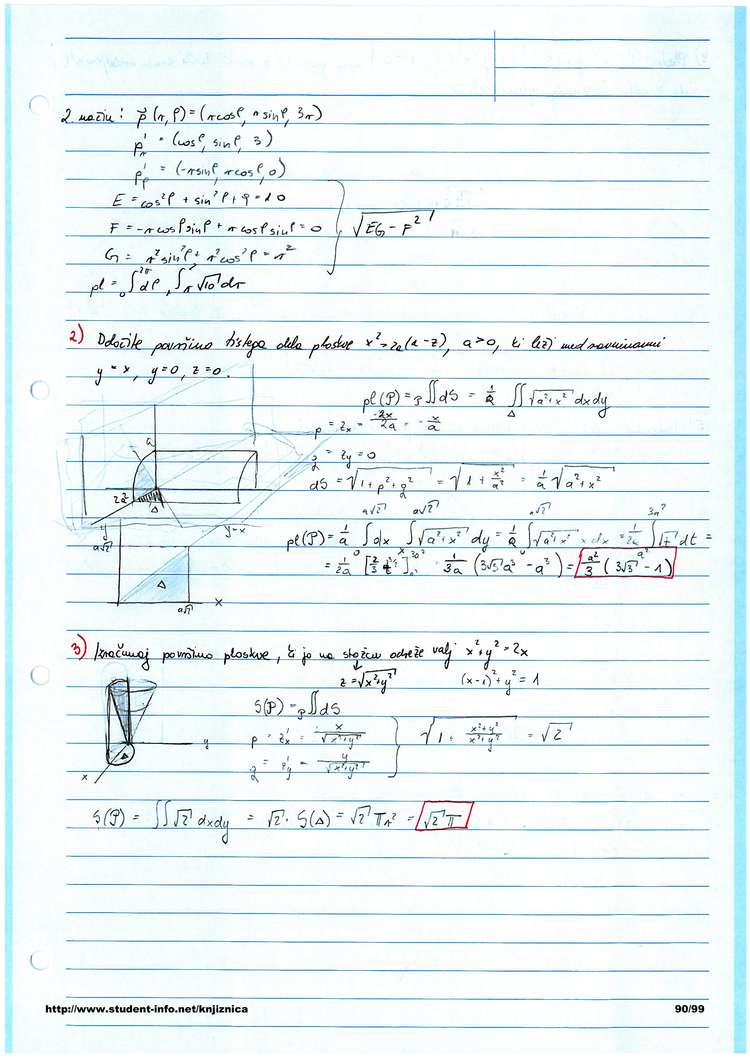 2. način: p⃗(r, φ) = (r cosφ, r sinφ, 3r)
p⃗'r = (cosφ, sinφ, 3)
p⃗'φ = (-r sinφ, r cosφ, 0)
E = cos²φ + sin²φ + 9 = 10
F = -r cosφ sinφ + r cosφ sinφ = 0 √(EG - F²)
G = r² sin²φ + r² cos²φ = r²
pl = ₀∫^2π dφ, ∫ r √10 dr
2) Določite površino tistega dela ploskve x² = 2a(a-z), a>0, ki leži med ravninami
y = x, y=0, z=0.
pl(P) = P∬ dS = 1/a ∬Δ √(a²+x²) dxdy
p = zx = -2x/2a = -x/a
a
q = zy = 0
dS = √(1+p²+q²) = √(1 + x²/a²) = 1/a √(a²+x²)
Δ
y
y=x
a√2
a√2 a√2 a√2 3a²
pl(P) = 1/a ∫ dx ∫ √(a²+x²) dy = 1/a ∫ √(a²+x²) x dx = 1/2a ∫ √t dt =
0 a²
= 1/2a [2/3 t^3/2] = 1/3a (3√3 a³ - a³) = a²/3 (3√3 - 1)
Δ
a√2
x
3) Izračunaj površino ploskve, ki jo na stožcu odreže valj x² + y² = 2x
z = √(x²+y²) (x-1)² + y² = 1
S(P) = P∬ dS
p = z'x = x/√(x²+y²)
√(1 + (x²+y²)/(x²+y²)) = √2
q = z'y = y/√(x²+y²)
y
x
Δ
S(P) = ∬ √2 dxdy = √2 · S(Δ) = √2 π r² = √2 π
http://www.student-info.net/knjiznica 90/99